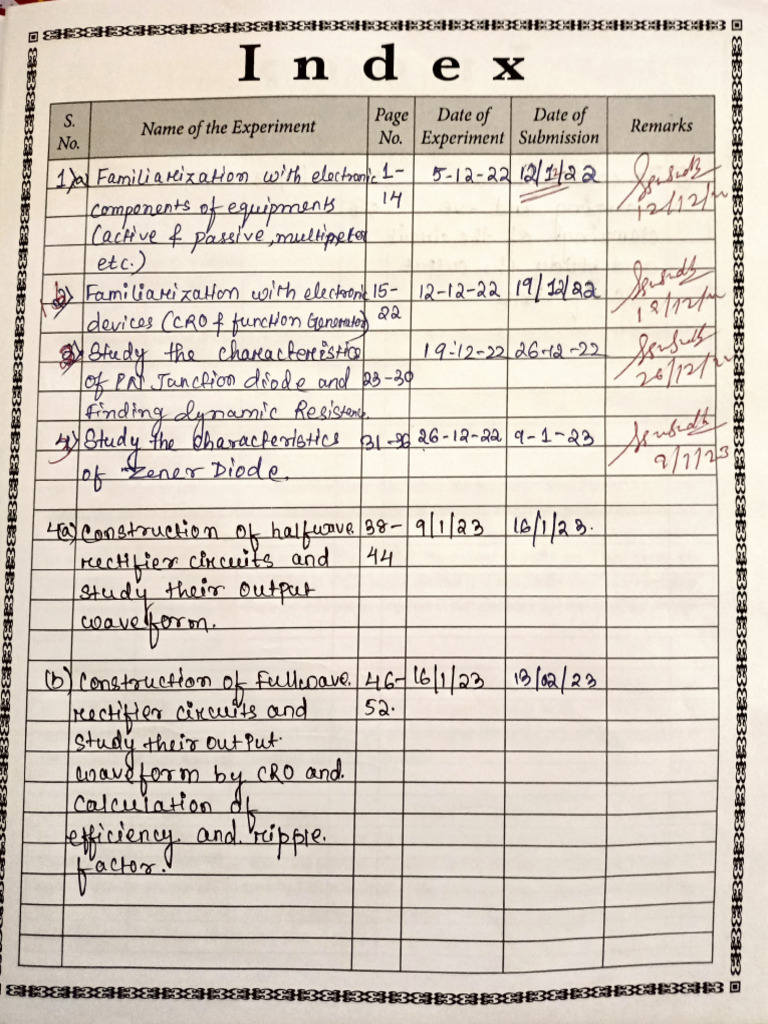 Index
S. No. Name of the Experiment Page No. Date of Experiment Date of Submission Remarks
1)a) Familiarization with electronic 1- 5-12-22 12/12/22
components of equipments 14 12/12/22
(active & passive, multimeter
etc.)
b) Familiarization with electronic 15- 12-12-22 19/12/22
devices (CRO & function Generator) 22 19/12/22
Study the characteristics 19-12-22 26-12-22
of PN Junction diode and 23-30 26/12/22
finding dynamic Resistence.
Study the characteristics 31-36 26-12-22 9-1-23
of Zener Diode. 9/1/23
4(a) Construction of halfwave 38- 9/1/23 16/1/23.
rectifier circuits and 44
study their output
waveform.
(b) Construction of Fullwave. 46- 16/1/23 13/02/23
rectifier circuits and 52.
study their output.
waveform by CRO and.
Calculation of
efficiency and. ripple.
factor.